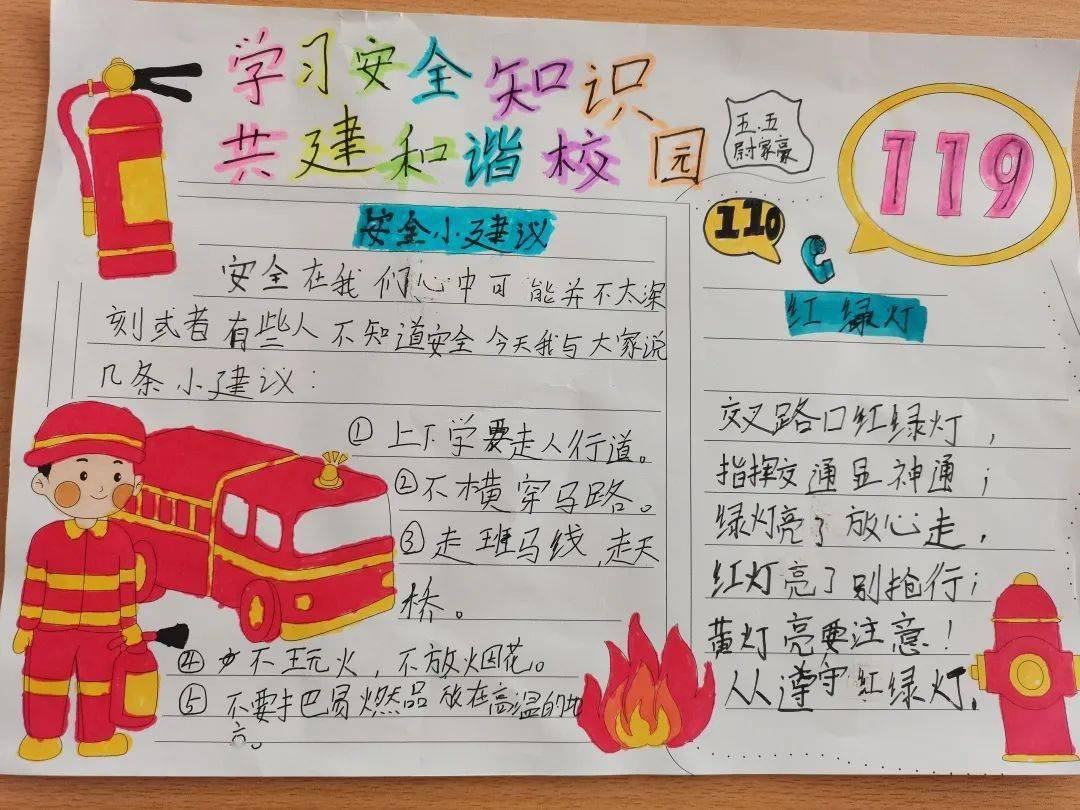 学习安全知识
共建和谐校园
五.五
尉家豪
119
110
安全小建议
安全在我们心中可能并不太深
刻或者有些人不知道安全今天我与大家说
几条小建议：
①上下学要走人行道。
②不横穿马路。
③走班马线,走天
桥。
④不玩火，不放烟花。
⑤不要把易燃品放在高温的地
方。
红绿灯
交叉路口红绿灯，
指挥交通显神通；
绿灯亮了放心走，
红灯亮了别抢行；
黄灯亮要注意！
人人遵守红绿灯.